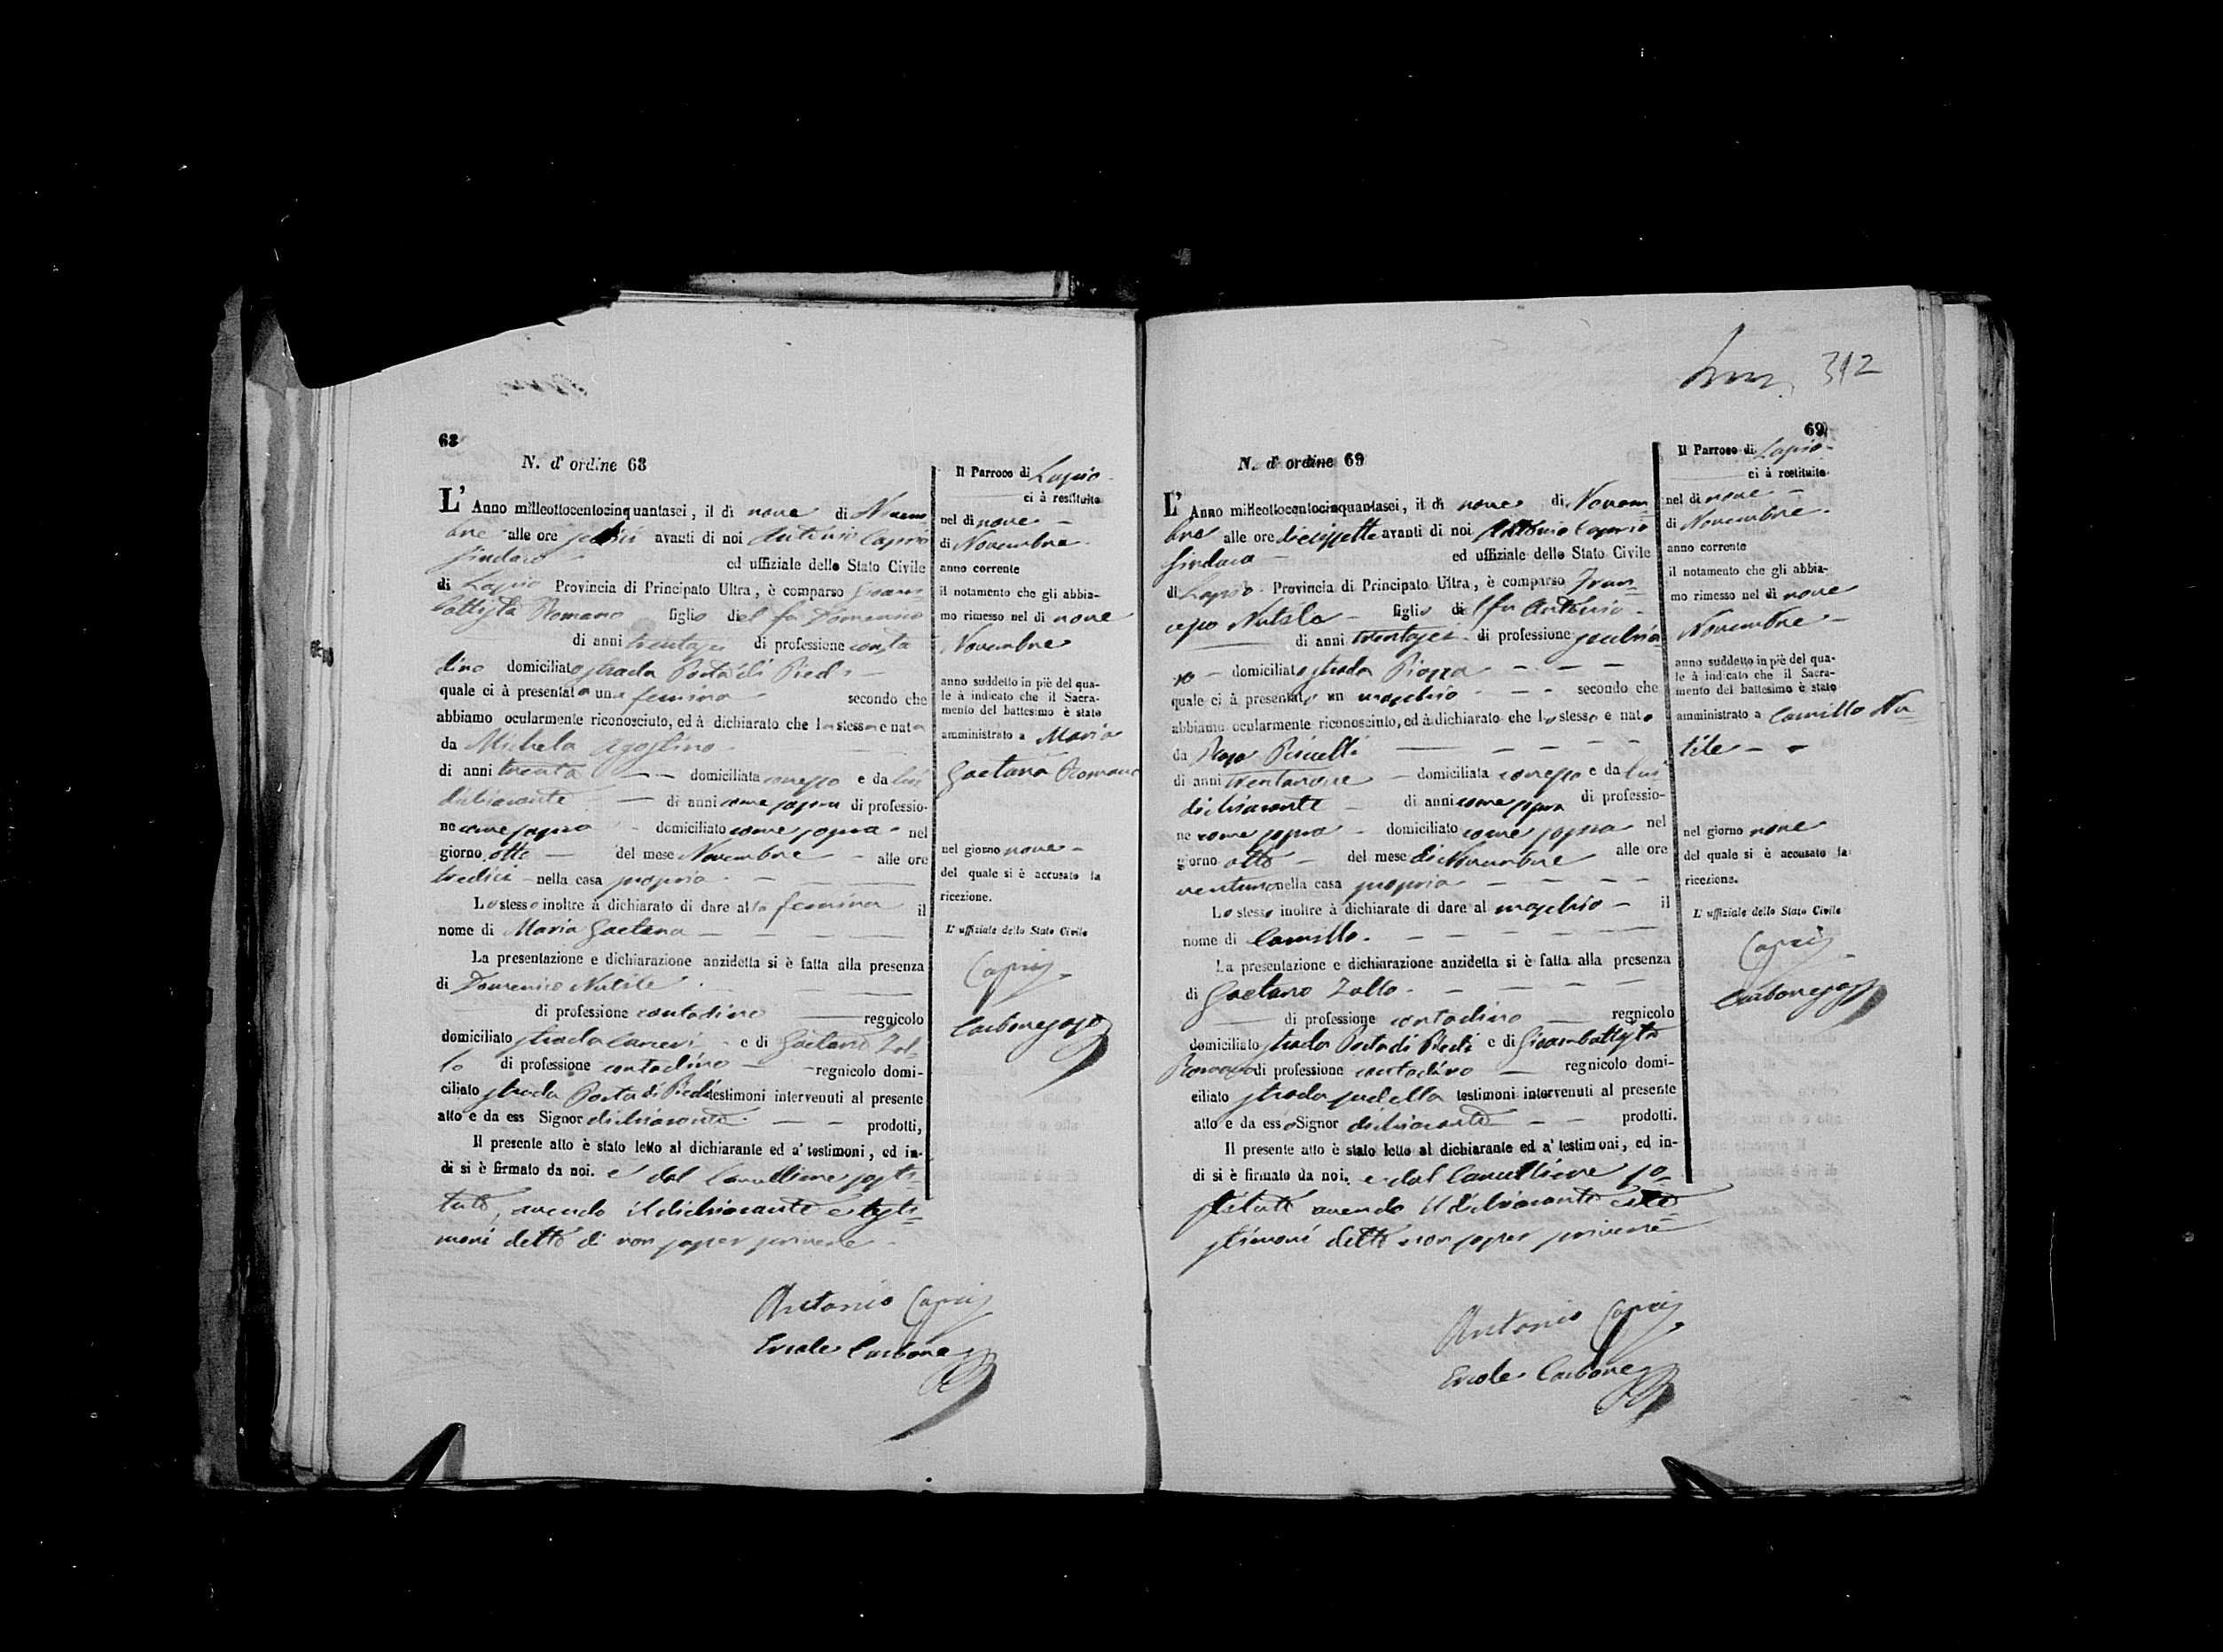 68
N. d' ordine 68
L' Anno milleottocentocinquantasei, il dì nove di Novem
bre alle ore sedici avanti di noi Antonio Caprio
Sindaco ed uffiziale dello Stato Civile
di Lapio Provincia di Principato Ultra, è comparso Giam
battista Romano figlio del fu Domenico
di anni trentasei di professione conta
dino domiciliato strada Porta di Piedi
quale ci à presentata una femina secondo che
abbiamo ocularmente riconosciuto, ed à dichiarato che la stessa e nata
da Michela Agostino
di anni trenta domiciliata con esso e da lui
dichiarante di anni come sopra di professio-
ne come sopra domiciliato come sopra nel
giorno otto del mese Novembre alle ore
tredici nella casa propria
Lo stesso inoltre à dichiarato di dare alla femina il
nome di Maria Gaetana
La presentazione e dichiarazione anzidetta si è fatta alla presenza
di Domenico Natile
di professione contadino regnicolo
domiciliato strada e di Gaetano Zol=
lo di professione contadino regnicolo domi-
ciliato strada Porta di Piedi testimoni intervenuti al presente
atto e da ess Signor dichiarante prodotti,
Il presente atto è stato letto al dichiarante ed a' testimoni, ed in-
di si è firmato da noi. e dal Cancelliere sosti=
tuto, avendo il dichiarante e testi=
moni detto di non saper scrivere
Antonio Caprio
Ercole Carbone
Il Parroco di Lapio
ci à restituito
nel di nove
di Novembre
anno corrente
il notamento che gli abbia-
mo rimesso nel di nove
Novembre
anno suddetto in piè del qua-
le à indicato che il Sacra-
mento del battesimo è stato
amministrato a Maria
Gaetana Romano
nel giorno nove
del quale si è accusato la
ricezione.
L' uffiziale dello Stato Civile
Caprio
Carbone
312
69
N. d' ordine 69
L' Anno milleottocentocinquantasei, il dì nove di Novem=
bre alle ore diecissette avanti di noi Antonio Caprio
Sindaco ed uffiziale dello Stato Civile
di Lapio Provincia di Principato Ultra, è comparso Fran=
cesco Natale figlio del fu Antonio
di anni trentasei di professione
domiciliato strada Piazza
quale ci à presentato un maschio secondo che
abbiamo ocularmente riconosciuto, ed à dichiarato che lo stesso e nato
da Rosa
di anni trentanove domiciliata con esso e da lui
dichiarante di anni come sopra di professio-
ne come sopra domiciliato come sopra nel
giorno otto del mese di Novembre alle ore
ventuno nella casa propria
Lo stesso inoltre à dichiarato di dare al maschio il
nome di Camillo.
La presentazione e dichiarazione anzidetta si è fatta alla presenza
di Gaetano Zollo
di professione contadino regnicolo
domiciliato strada Porta di Piedi e di Giambattista
Romano di professione contadino regnicolo domi-
ciliato strada sudetta testimoni intervenuti al presente
atto e da esso Signor dichiarante prodotti.
Il presente atto è stato letto al dichiarante ed a' testimoni, ed in-
di si è firmato da noi. e dal Cancelliere so=
stituto avendo il dichiarante e te=
stimoni detto non saper scrivere
Antonio Caprio
Ercole Carbone
Il Parroco di Lapio
ci à restituito
nel di nove
di Novembre
anno corrente
il notamento che gli abbia-
mo rimesso nel di nove
Novembre
anno suddetto in piè del qua-
le à indicato che il Sacra-
mento del battesimo è stato
amministrato a Camillo Na=
tile
nel giorno nove
del quale si è accusato la
ricezione.
L' uffiziale dello Stato Civile
Caprio
Carbone